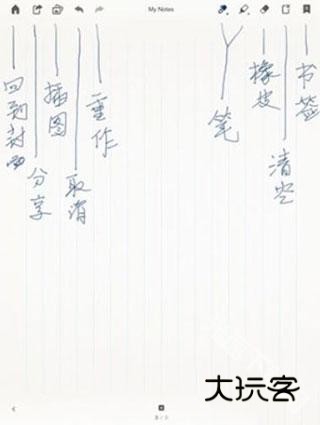 My Notes
回到封面
分享
插图
取消
重作
笔
橡皮
清空
书签
大玩客